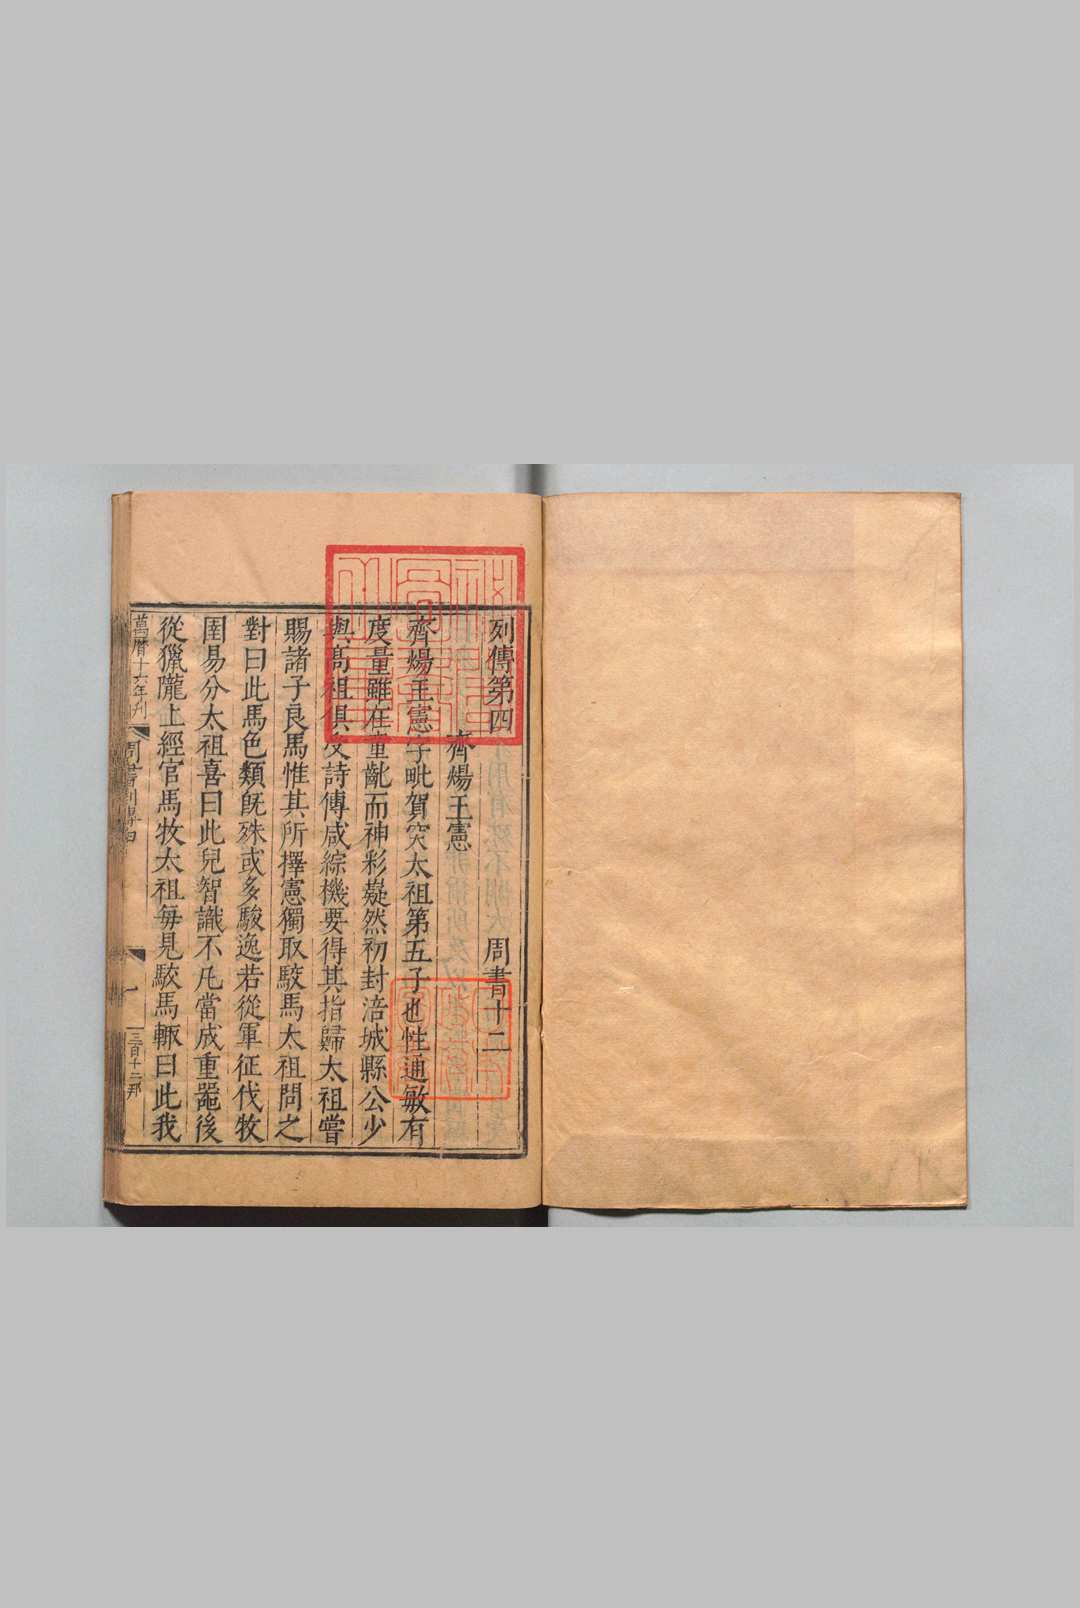 列傳第四 周書十二
齊煬王憲
齊煬王憲字毗賀突太祖第五子也性通敏有
度量雖在童齓而神彩嶷然初封涪城縣公少
與高祖俱受詩傳咸綜機要得其指歸太祖嘗
賜諸子良馬惟其所擇憲獨取駮馬太祖問之
對曰此馬色類既殊或多駿逸若從軍征伐牧
圉易分太祖喜曰此兒智識不凡當成重器後
從獵隴上經官馬牧太祖每見駮馬輙曰此我
萬曆十六年刊 周書列傳四 一 三百十二